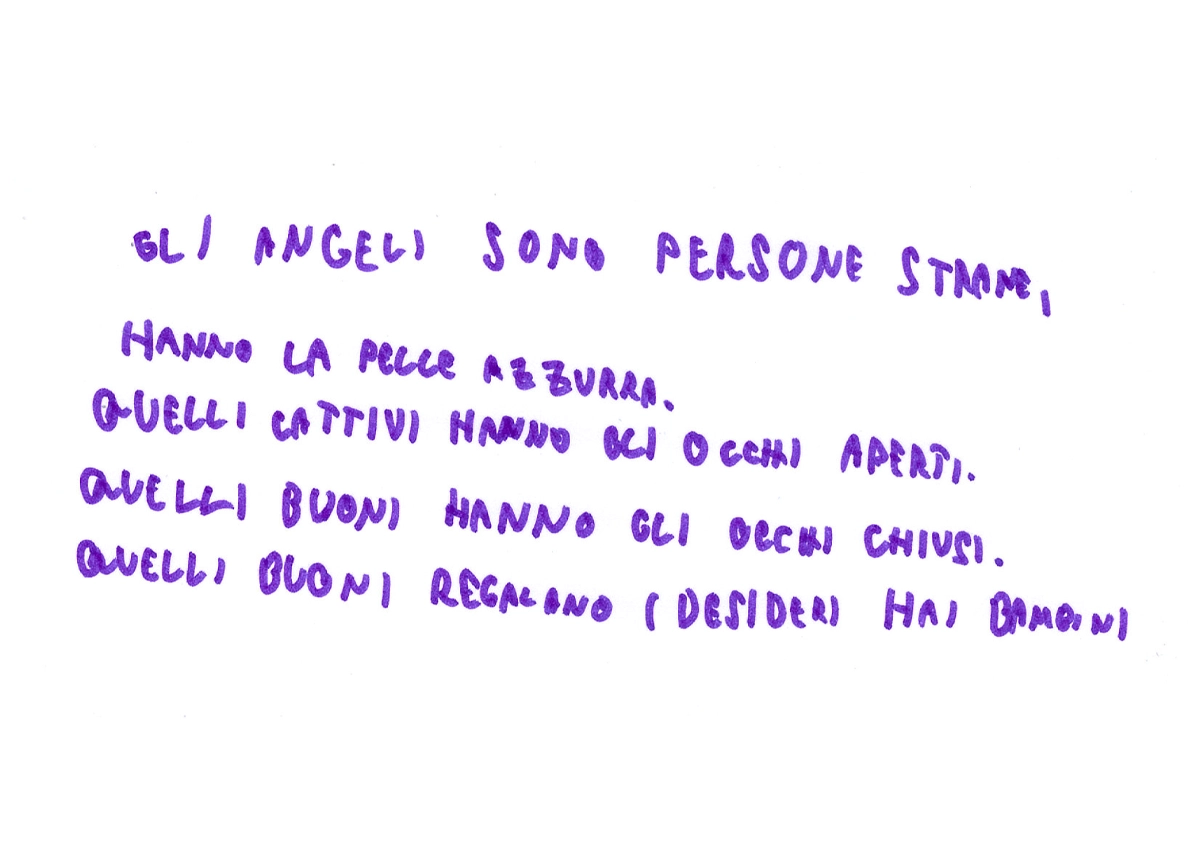 GLI ANGELI SONO PERSONE STRANE,
HANNO LA PELLE AZZURRA.
QUELLI CATTIVI HANNO GLI OCCHI APERTI.
QUELLI BUONI HANNO GLI OCCHI CHIUSI.
QUELLI BUONI REGALANO I DESIDERI HAI BAMBINI